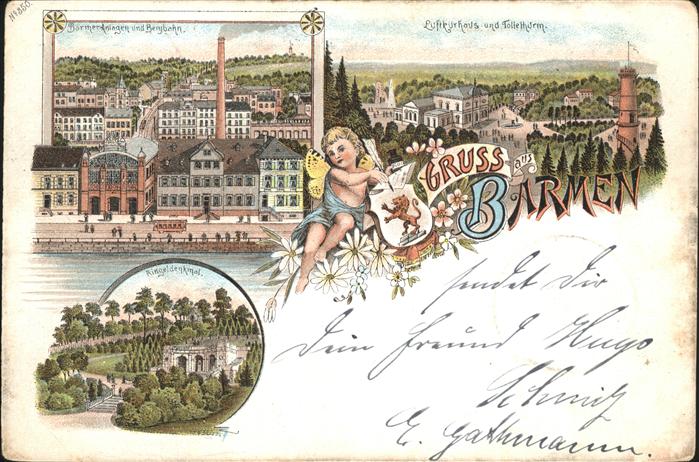 No 350.
Barmer Anlagen und Bergbahn.
Luftkurhaus und Tölleturm.
GRUSS aus
BARMEN
Ringeldenkmal.
sendet Dir
Dein Freund Hugo
Schmitz
E. Gathmann.